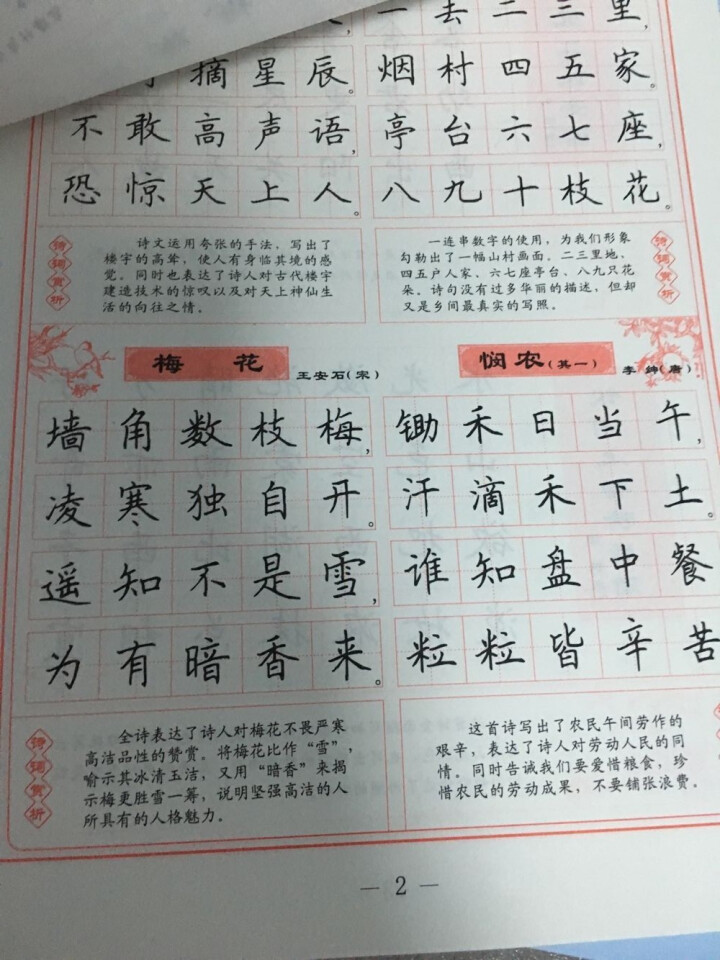 一去二三里，
摘星辰。
烟村四五家。
不敢高声语，
亭台六七座，
恐惊天上人。
八九十枝花。
诗词赏析
诗文运用夸张的手法，写出了
楼宇的高耸，使人有身临其境的感
觉。同时也表达了诗人对古代楼宇
建造技术的惊叹以及对天上神仙生
活的向往之情。
一连串数字的使用，为我们形象
勾勒出了一幅山村画面。二三里地、
四五户人家、六七座亭台、八九只花
朵。诗句没有过多华丽的描述，但却
又是乡间最真实的写照。
诗词赏析
梅 花
王安石（宋）
墙角数枝梅，
凌寒独自开。
遥知不是雪，
为有暗香来。
诗词赏析
全诗表达了诗人对梅花不畏严寒
高洁品性的赞赏。将梅花比作“雪”，
喻示其冰清玉洁，又用“暗香”来揭
示梅更胜雪一筹，说明坚强高洁的人
所具有的人格魅力。
悯农（其一）
李绅（唐）
锄禾日当午，
汗滴禾下土。
谁知盘中餐
粒粒皆辛苦
这首诗写出了农民午间劳作的
艰辛，表达了诗人对劳动人民的同
情。同时告诫我们要爱惜粮食，珍
惜农民的劳动成果，不要铺张浪费。
— 2 —